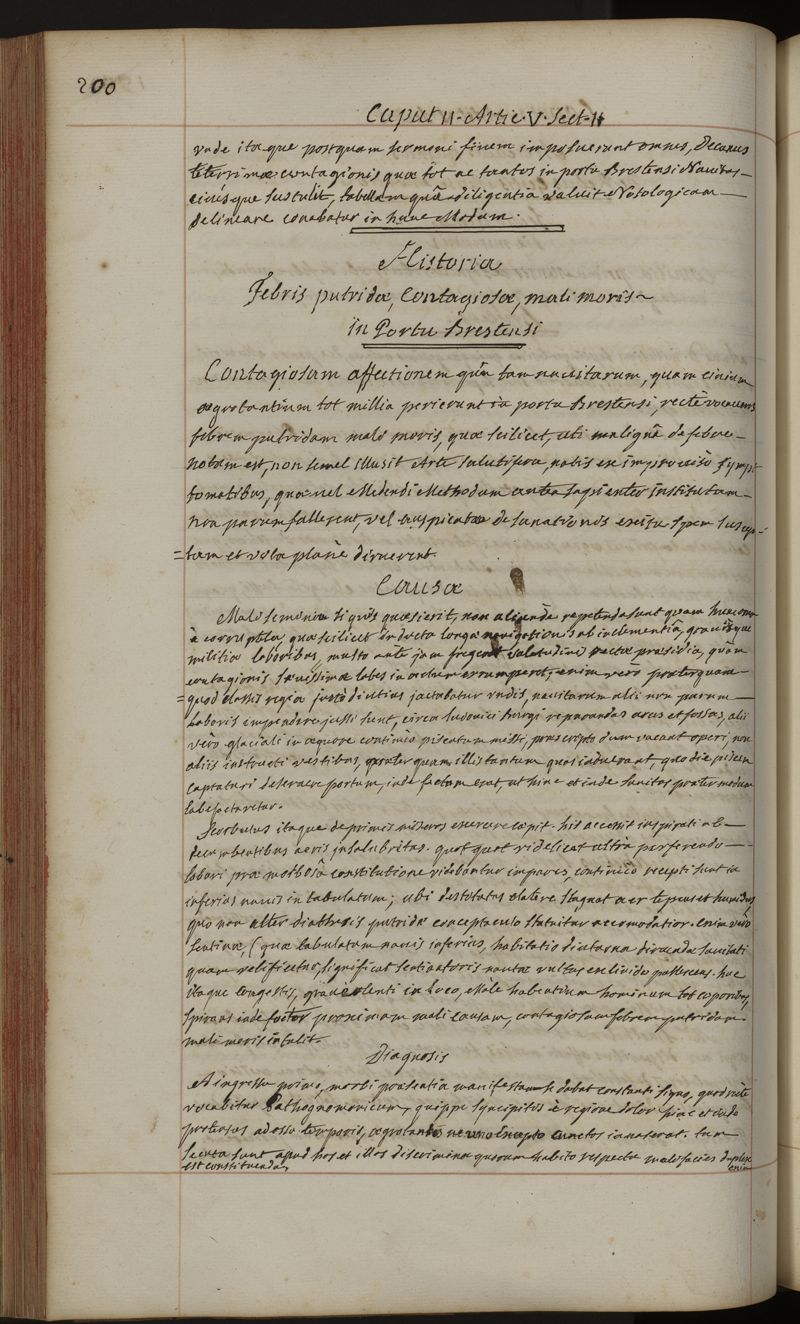 200
Caput II. Artic. V. Sect. II
unde itaque postquam sermoni finem imposuerunt omnes, Decanus
teterrimæ contagionis quæ tot ac tantos in portu Brestensi Navitas
civésque sustulit, tabellam quâ diligentia valuit Nosologicam
delineare conabatur in hunc Modum.
Historia
Febris putridæ, Contagiosæ, mali moris
in Portu Brestensi
Contagiosam affectionem quâ tam navitarum, quam civium
ægrotantium tot millia perierunt in portu Brestensi, rectè vocaveris
febrem putridam mali moris, quæ scilicet, uti malignâ de febre
notum est, non semel illusit Arte salutifera, natis ex improviso symp-
tomatibus, quæ vel Medendi Methodum antea sapienter institutam
non parum fallerent, vel auspicatæ de sanationis exitu spem suscep-
=tam et vota planè diruerent.
Causæ
Mali semina si quis quæsierit, non aliunde repetenda sunt quam
à corruptela, quæ scilicet inducta longâ navigatione sub inclementiâ, gravibúsque
militiæ laboribus, multo ante jam valetudini præsidia, quàm
contagionis sævissimæ labes in actum erumperet, enim verò præterquam
=quod classis regia justò diutius jactabatur undis, navitarum alii non parum
laboris impendere jussi sunt, circa Ludovici Burgi reparandas arces et fossas, alii
verò glaciali in æquore continuis piscatum missi, præscripto dum vacant operi, non
aliis instructi vestibus, præterquam illis tantum quas induerant, quo die pisces
captaturi deseruere portum, inde factum erat, ut hinc et inde sanitas præter modum
labefactaretur.
Scorbutus itaque de primis miseros exercere cœpit. his accessit inspirati ab
decumbentibus aeris insalubritas. quotquot videlicet ultra perferendo
labori præ morbosâ constitutione videbantur impares, continuò recepti sunt in
inferius navis in tabulatum; ubi destitutus elatere stagnat aer tepens et humidus
quo non alter diathesis putridæ conceptaculo statuitur accomodatior. enim verò
sentinæ, (quæ tabulatum navis inferius, habitatio diuturna sanitati
quam velificetur, significat nautæ vultus ex livido pallescens. huc
itaque congestis, graveolenti in loco, male habentium hominum tot corporibus
spirans inde fœtor proximam mali causam, contagiosam febrem putridam
mali moris intulit.
Diagnosis
A ingressu primo, morbi præsentia manifestam se dabat constanti signo, quod ritè
vocabitur Pathognomonicum, quippe syncipitis è regione dolor hinc et inde
protensus ad ossa temporis, ægrotantes nemine excepto cunctos invaserat. tum
secuta sunt apud hos et illos discrimina quorum habito respectu mali facies duplex
est constituenda, enim